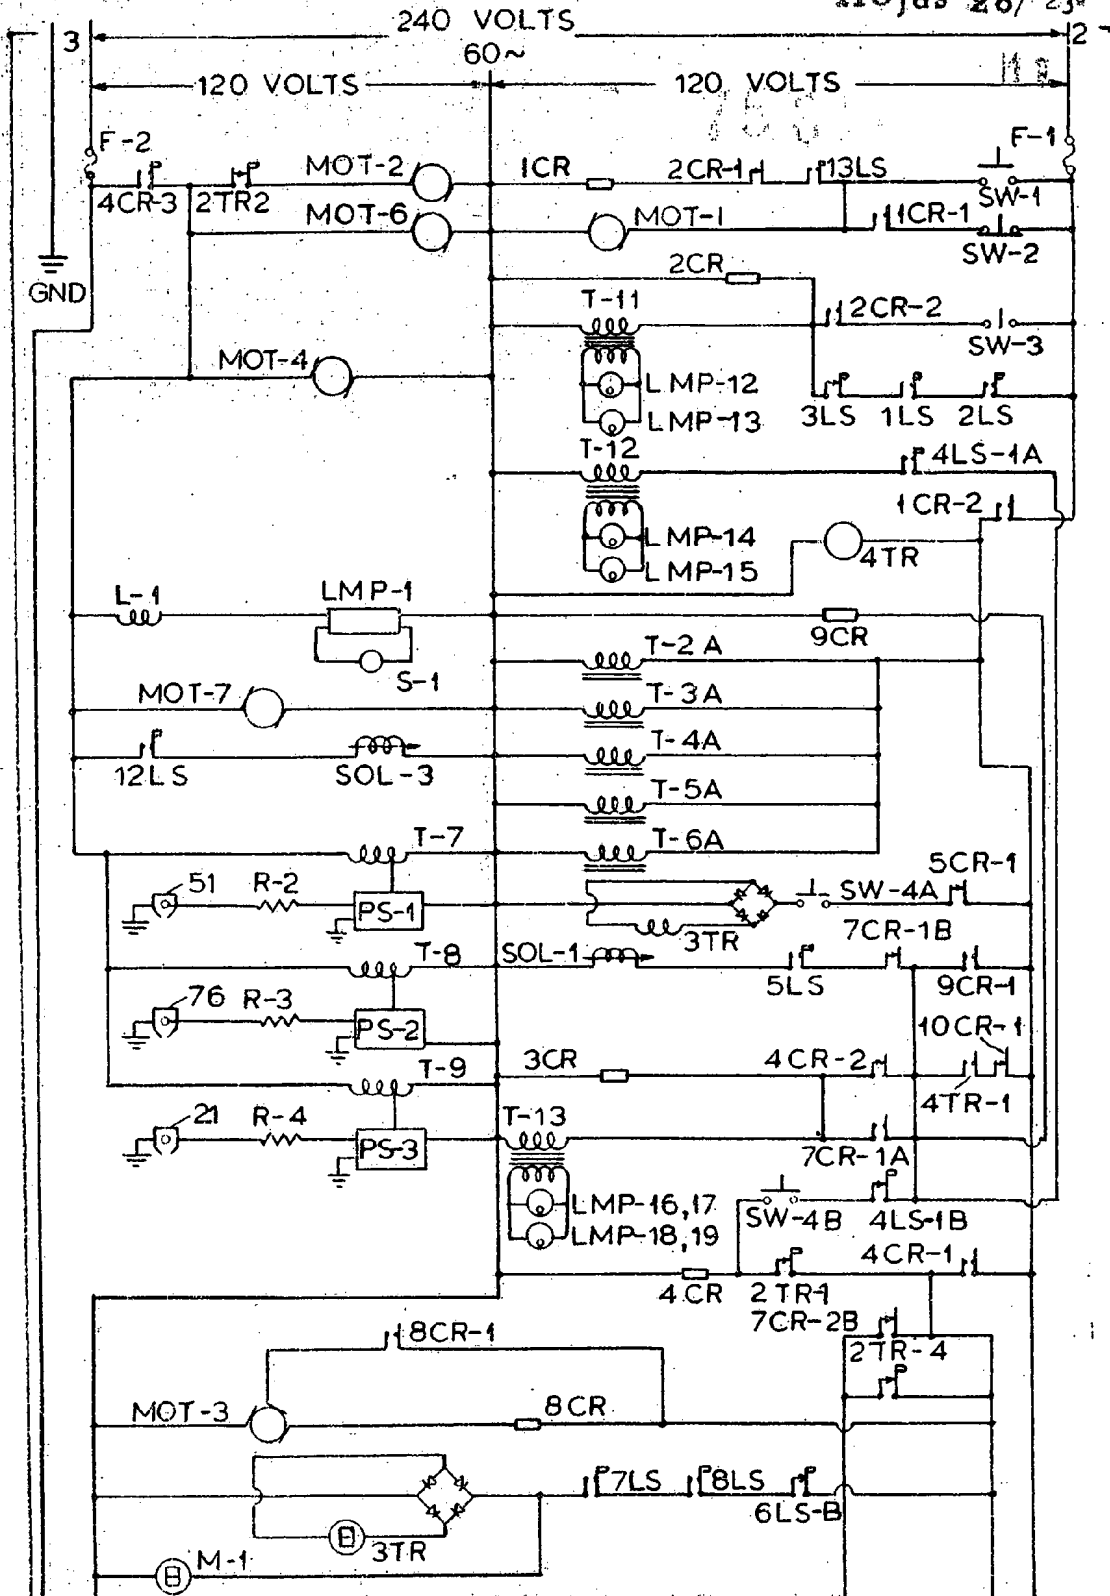 Hojas 26/
240 VOLTS
3
2
60~
120 VOLTS
120 VOLTS
F-2
F-1
MOT-2
1CR
2CR-1
13LS
4CR-3
2TR2
SW-1
MOT-6
MOT-1
1CR-1
SW-2
GND
2CR
T-11
2CR-2
SW-3
MOT-4
LMP-12
LMP-13
3LS
1LS
2LS
T-12
4LS-1A
1CR-2
LMP-14
4TR
LMP-15
L-1
LMP-1
9CR
S-1
T-2A
MOT-7
T-3A
T-4A
12LS
SOL-3
T-5A
T-7
T-6A
5CR-1
51
R-2
PS-1
SW-4A
3TR
7CR-1B
T-8
SOL-1
5LS
9CR-1
76
R-3
PS-2
10CR-1
T-9
3CR
4CR-2
4TR-1
21
R-4
PS-3
T-13
7CR-1A
LMP-16,17
SW-4B
4LS-1B
LMP-18,19
4CR-1
4CR
2TR-1
7CR-2B
8CR-1
2TR-4
MOT-3
8CR
7LS
8LS
6LS-B
3TR
M-1